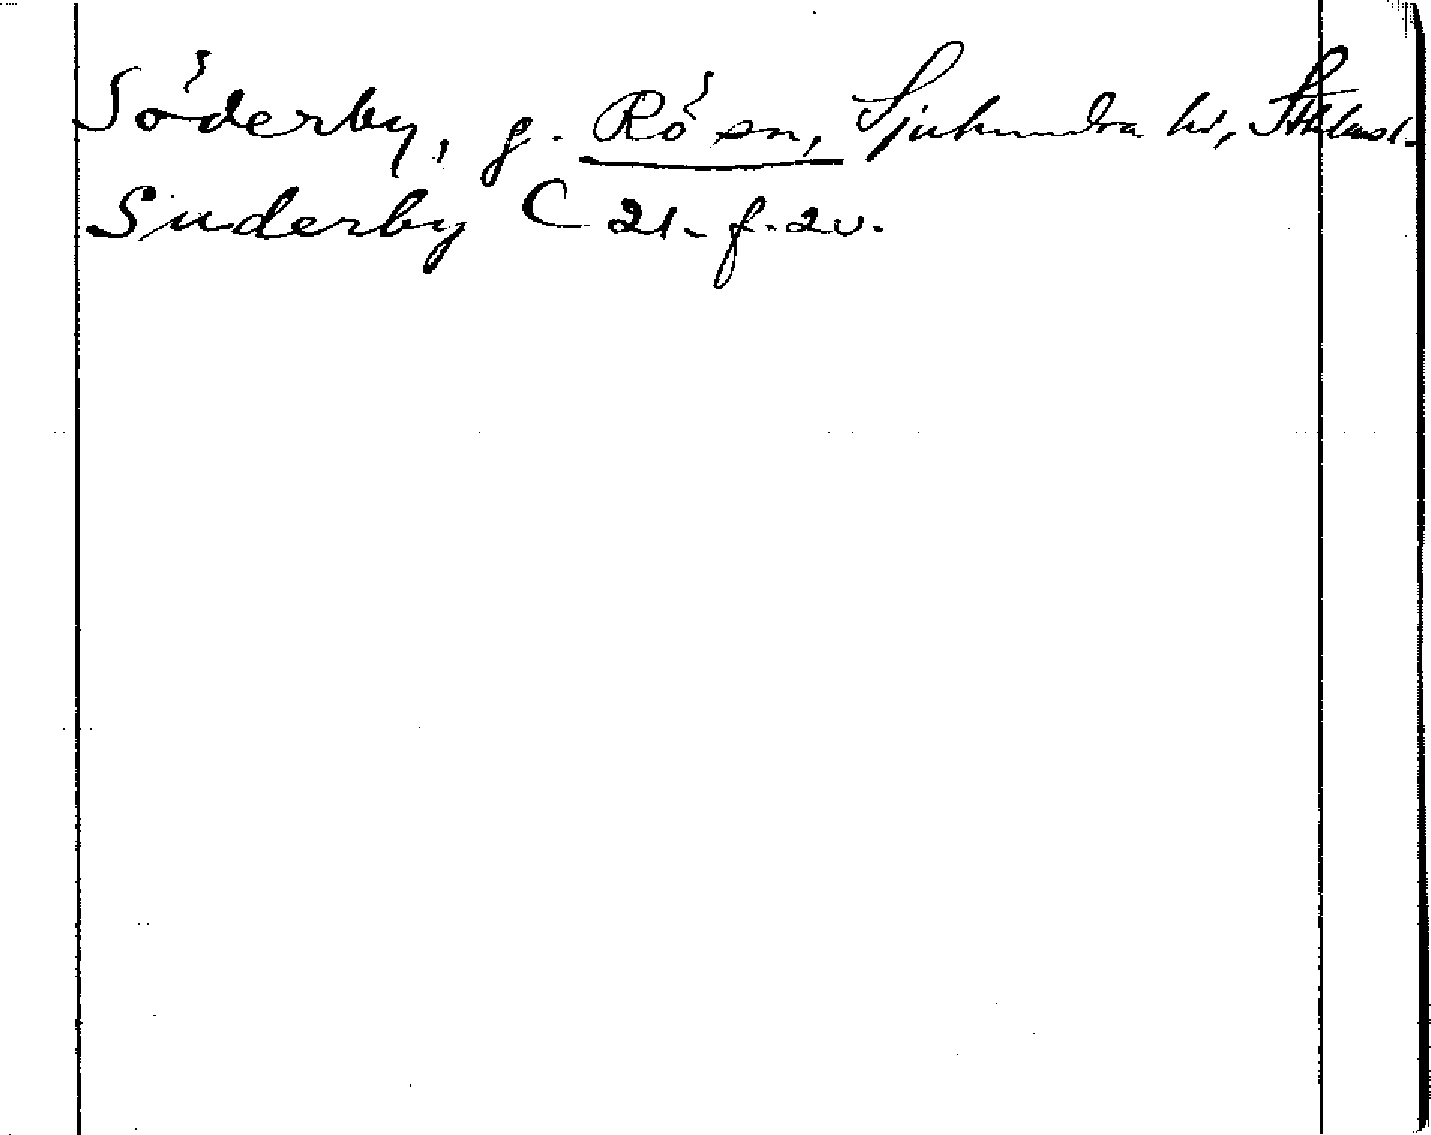 Söderby, g. Rö sn, Sjuhundra hd, Sthlms l.
Suderby C 21. f. 2v.